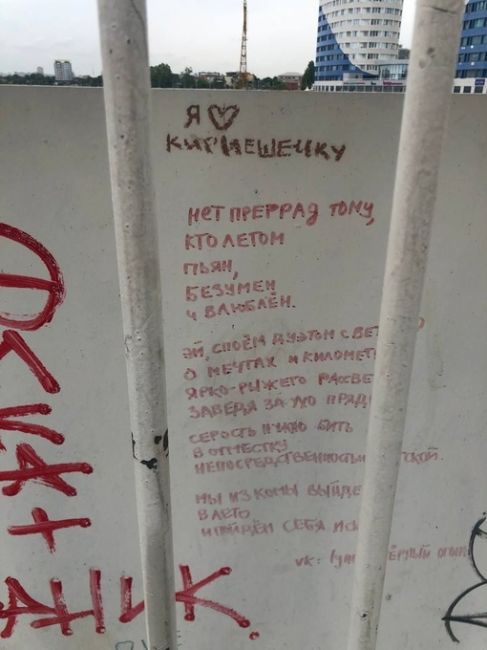 Я ♡
КИРПЕШЕЧКУ
НЕТ ПРЕГРАД ТОМУ,
КТО ЛЕТОМ
ПЬЯН,
БЕЗУМЕН
И ВЛЮБЛЁН.
ЭЙ, СПОЁМ ДУЭТОМ С ВЕТ
О МЕЧТАХ И КИЛОМЕТ
ЯРКО-РЫЖЕГО РАССВЕ
ЗАВЕДЯ ЗА УХО ПРЯД
СЕРОСТЬ НУЖНО БИТЬ
В ОТМЕСТКУ
НЕПОСРЕДСТВЕННОСТЬЮ ТСКОЙ.
МЫ ИЗ КОМЫ ВЫЙДЕ
В ЛЕТО
И НАЙДЁМ СЕБЯ
vk: